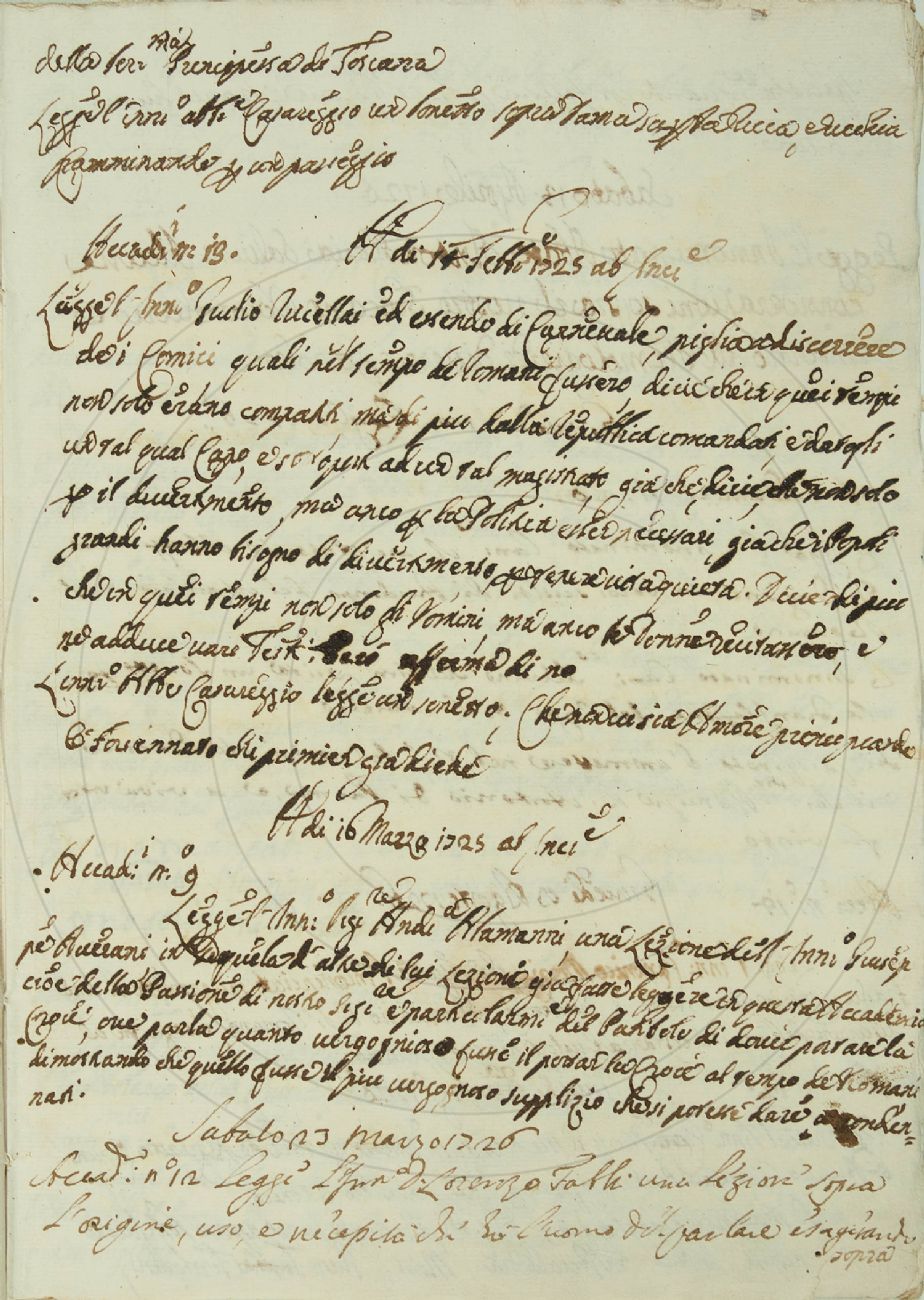 della Ser.ma Principessa di Toscana
Legge l'Inn.o Abb.e Casareggio un sonetto sopra Dama ricca, e vecchia
Camminando p con passeggio
Accad.i n. 19. A di 14 Febb.e 1725 ab Inc.e
Legge l'Inn.o Giulio Rucellai ed essendo di Carnevale, piglia a discorrere
de i Comici quali nel tempo de Romani fussero, dice che in quei tempi
non solo erano compatiti, ma di piu dalla Republica comandati, e dato gli
un tal qual Capo, e ad un tal magistrato, già che, dice, che non solo
p il divertimento, ma anco p la Politica esser necessari, già che i Popoli
grandi hanno bisogno di divertimento p tenere vita quieta. Dice di piu
che in quei tempi non solo gli Uomini, ma anco le Donne recitassero, e
ne adduce vari Testi: Però afferma di no
L'Inn.o Abb.e Casareggio legge un sonetto; Che non vi sia Amore
E forsennato chi primier già diede
A di 16 Marzo 1725 ab Inc.e
Accad.i n.o 9
Legge l'Inn.o Sig.re And.a Alamanni, una Lezione dell'Inn.o Giusep
pe Averani in sequela d'altre di lui Lezioni già fatte leggere in questa Accademia
cioè della Passione di nostro Sig.re e particolarm.e del portare la
Croce, ove parla quanto vergognioso fusse il portar la Croce al tempo de Romani
dimostrando che quello fusse il piu vergognoso supplizio che si potesse dare a conden=
nati.
Sabato 23 marzo 1726
Accad.i n.o 12 Legge l'Inn.o D. Lorenzo una lezione sopra
L'origine, uso, e necessità che hà l'uomo del parlare esagerando
sopra